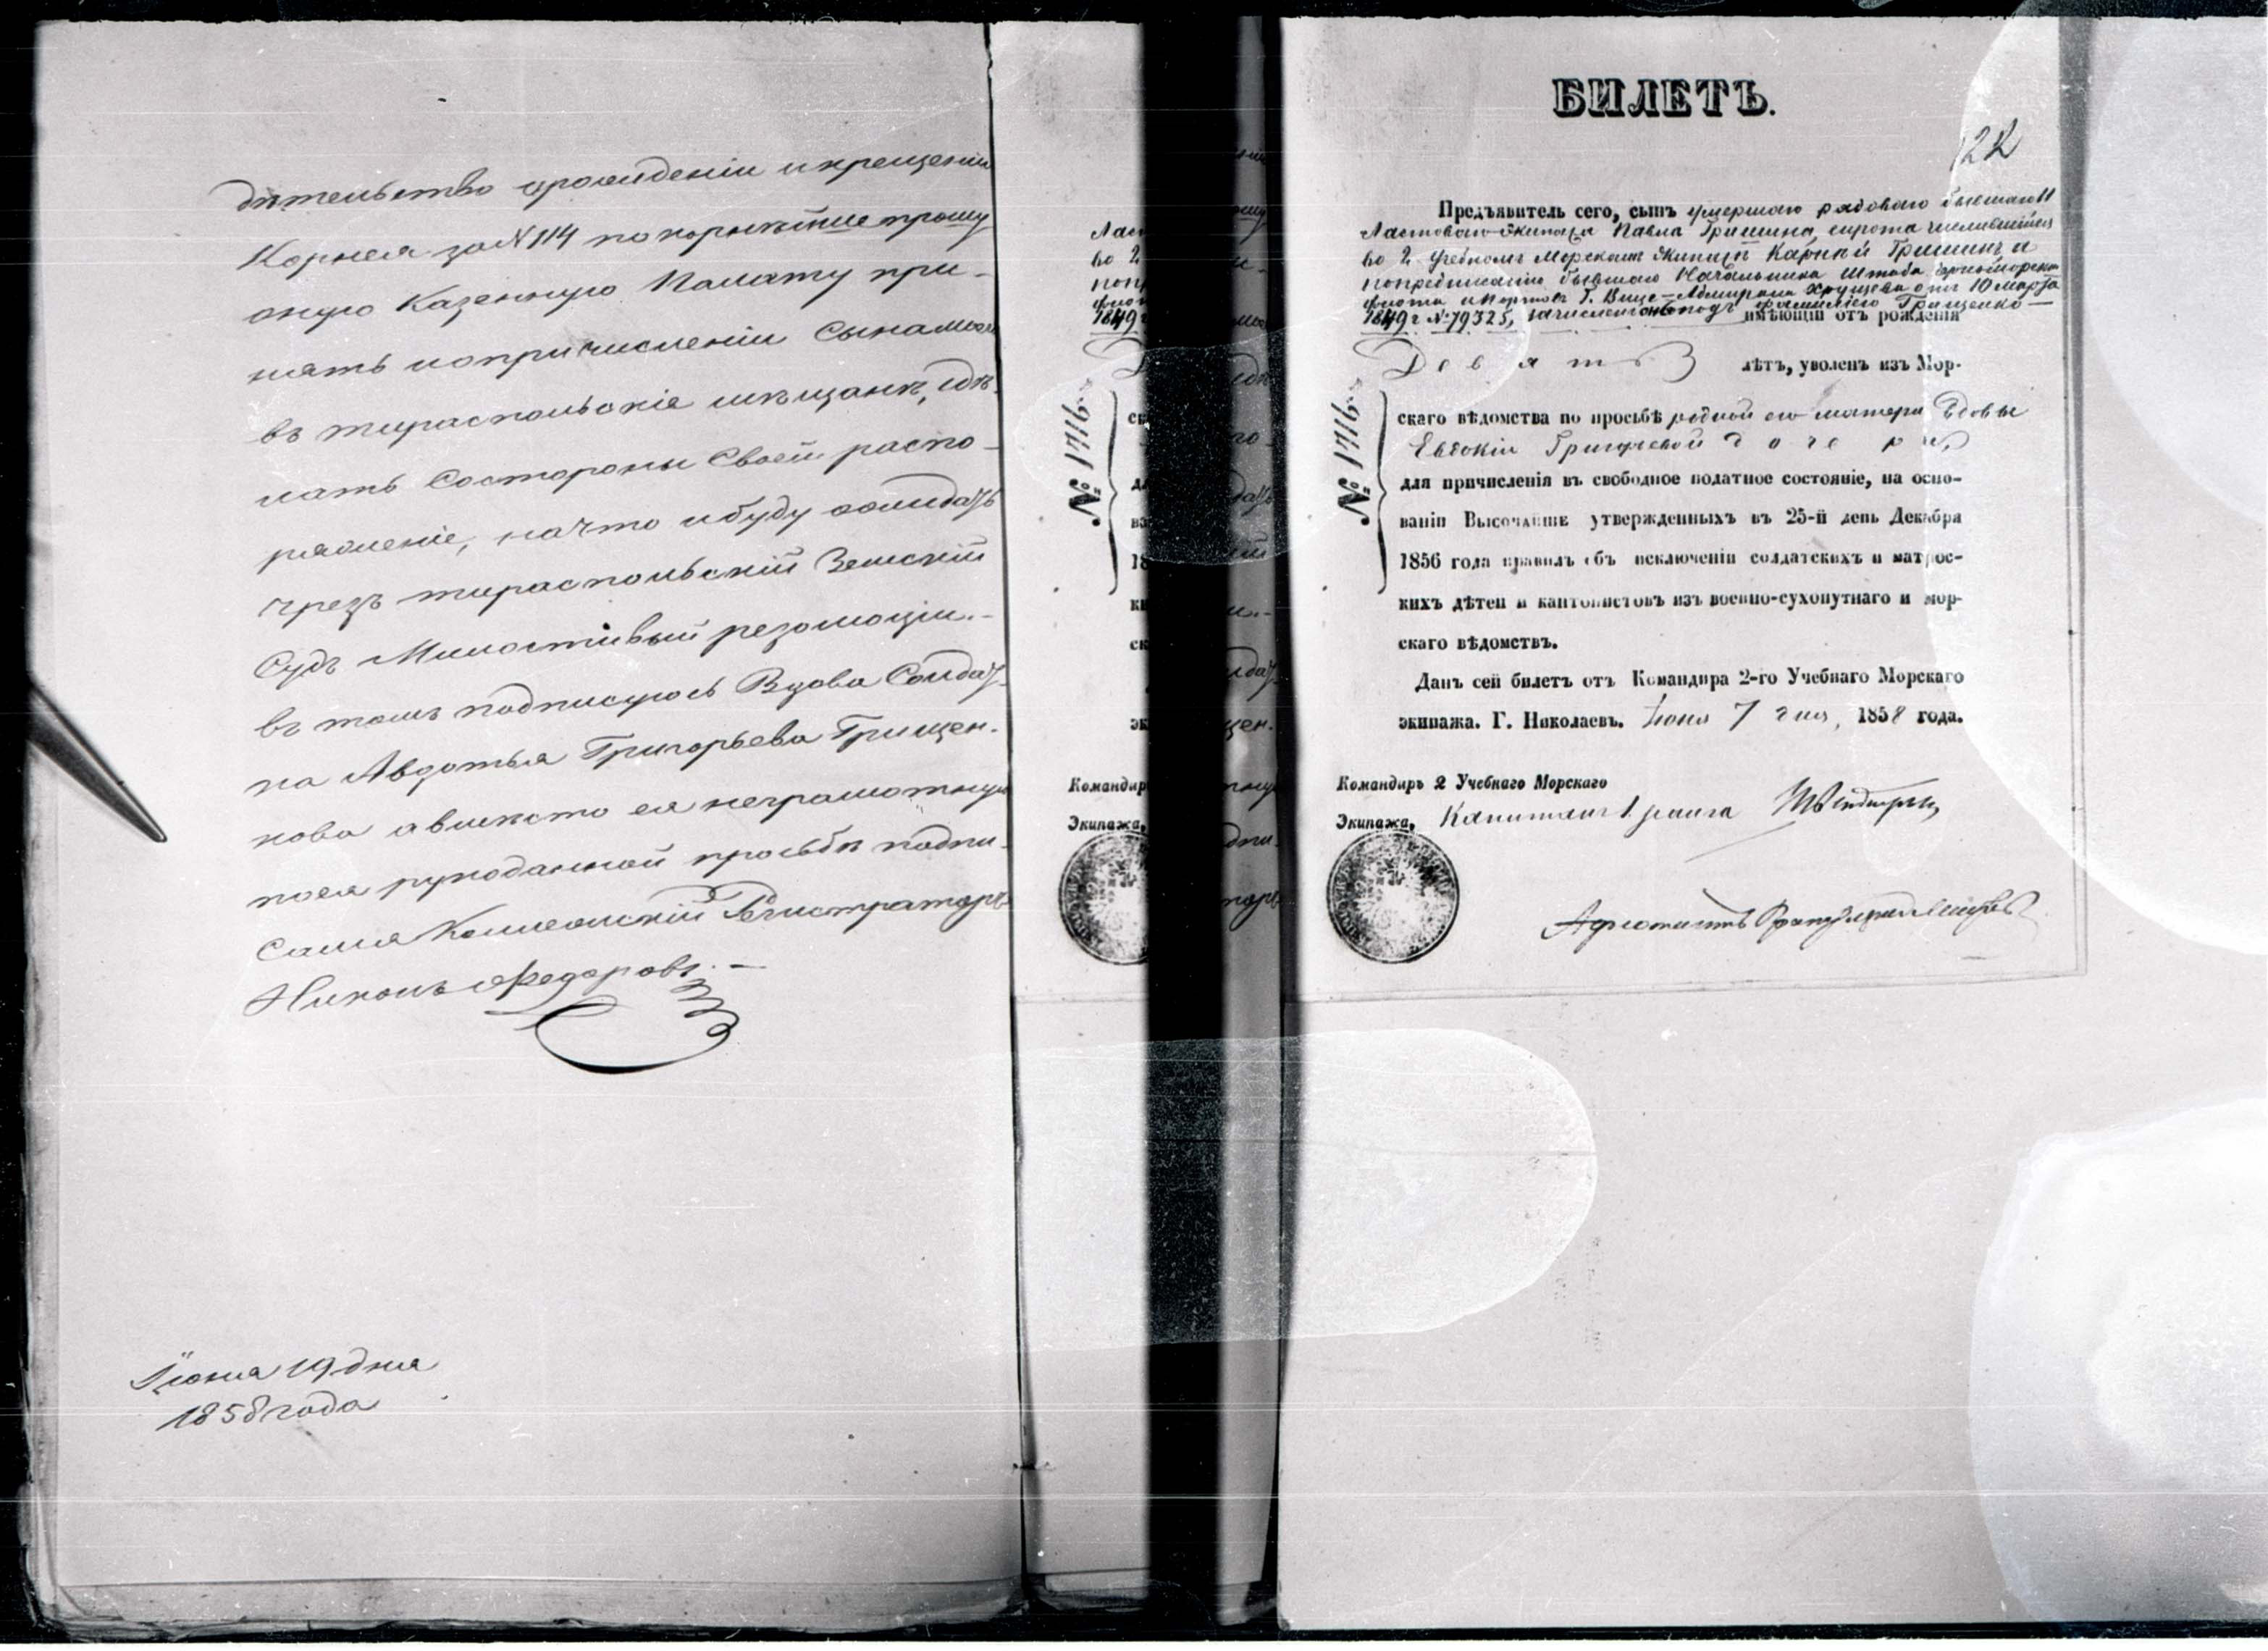 дѣтельство орожденіи икрещеніи
Корнея за N 114 покорнѣйше прошу
оную Казенную Палату при-
нять иопричисленіи Сына моего
въ тираспольскіе мѣщане, сдѣ-
лать Состороны Своей распо-
ряженіе, начто ибуду ожидать
чрезъ тираспольскій Земскій
Судъ Милостивый резолюціи.-
въ томъ подписуюсь Вдова Солдат-
ка Авдотья Григорьева Грищен-
кова авместо ея неграмотную
поея рукоданной прозбѣ подпи-
сался Колежскій Регистраторъ
Никонъ Федоровъ.-
Іюня 19 дня
1858 года
БИЛЕТЪ.
Предъявитель сего, сынъ умершаго рядоваго бывшаго 11
Ластоваго экипажа Павла Гришина, сирота числившійся
во 2 Учебномъ Морскомъ Экипажѣ Карней Гришинъ, и
попредписанію бывшаго Начальника Штаба Черноморскаго
флота и портовъ Г. Вице-Адмирала Хрущева отъ 10 Марта
1849 г № 79325, зачисленъ подъ фамиліею Грищенко —
имѣющій отъ рожденія
Девять лѣтъ, уволенъ изъ Мор-
№ 1716
скаго вѣдомства по просьбѣ родной его матери Вдовы
Евдокіи Григорьевой дочери,
для причисленія въ свободное податное состояніе, на осно-
ваніи Высочайше утвержденныхъ въ 25-й день Декабря
1856 года правилъ объ исключеніи солдатскихъ и матрос-
кихъ дѣтей и кантонистовъ изъ военно-сухопутнаго и мор-
скаго вѣдомствъ.
Данъ сей билетъ отъ Командира 2-го Учебнаго Морскаго
экипажа. Г. Николаевъ. Іюня 7 дня, 1858 года.
Командиръ 2 Учебнаго Морскаго
Экипажа, Капитанъ 1 ранга